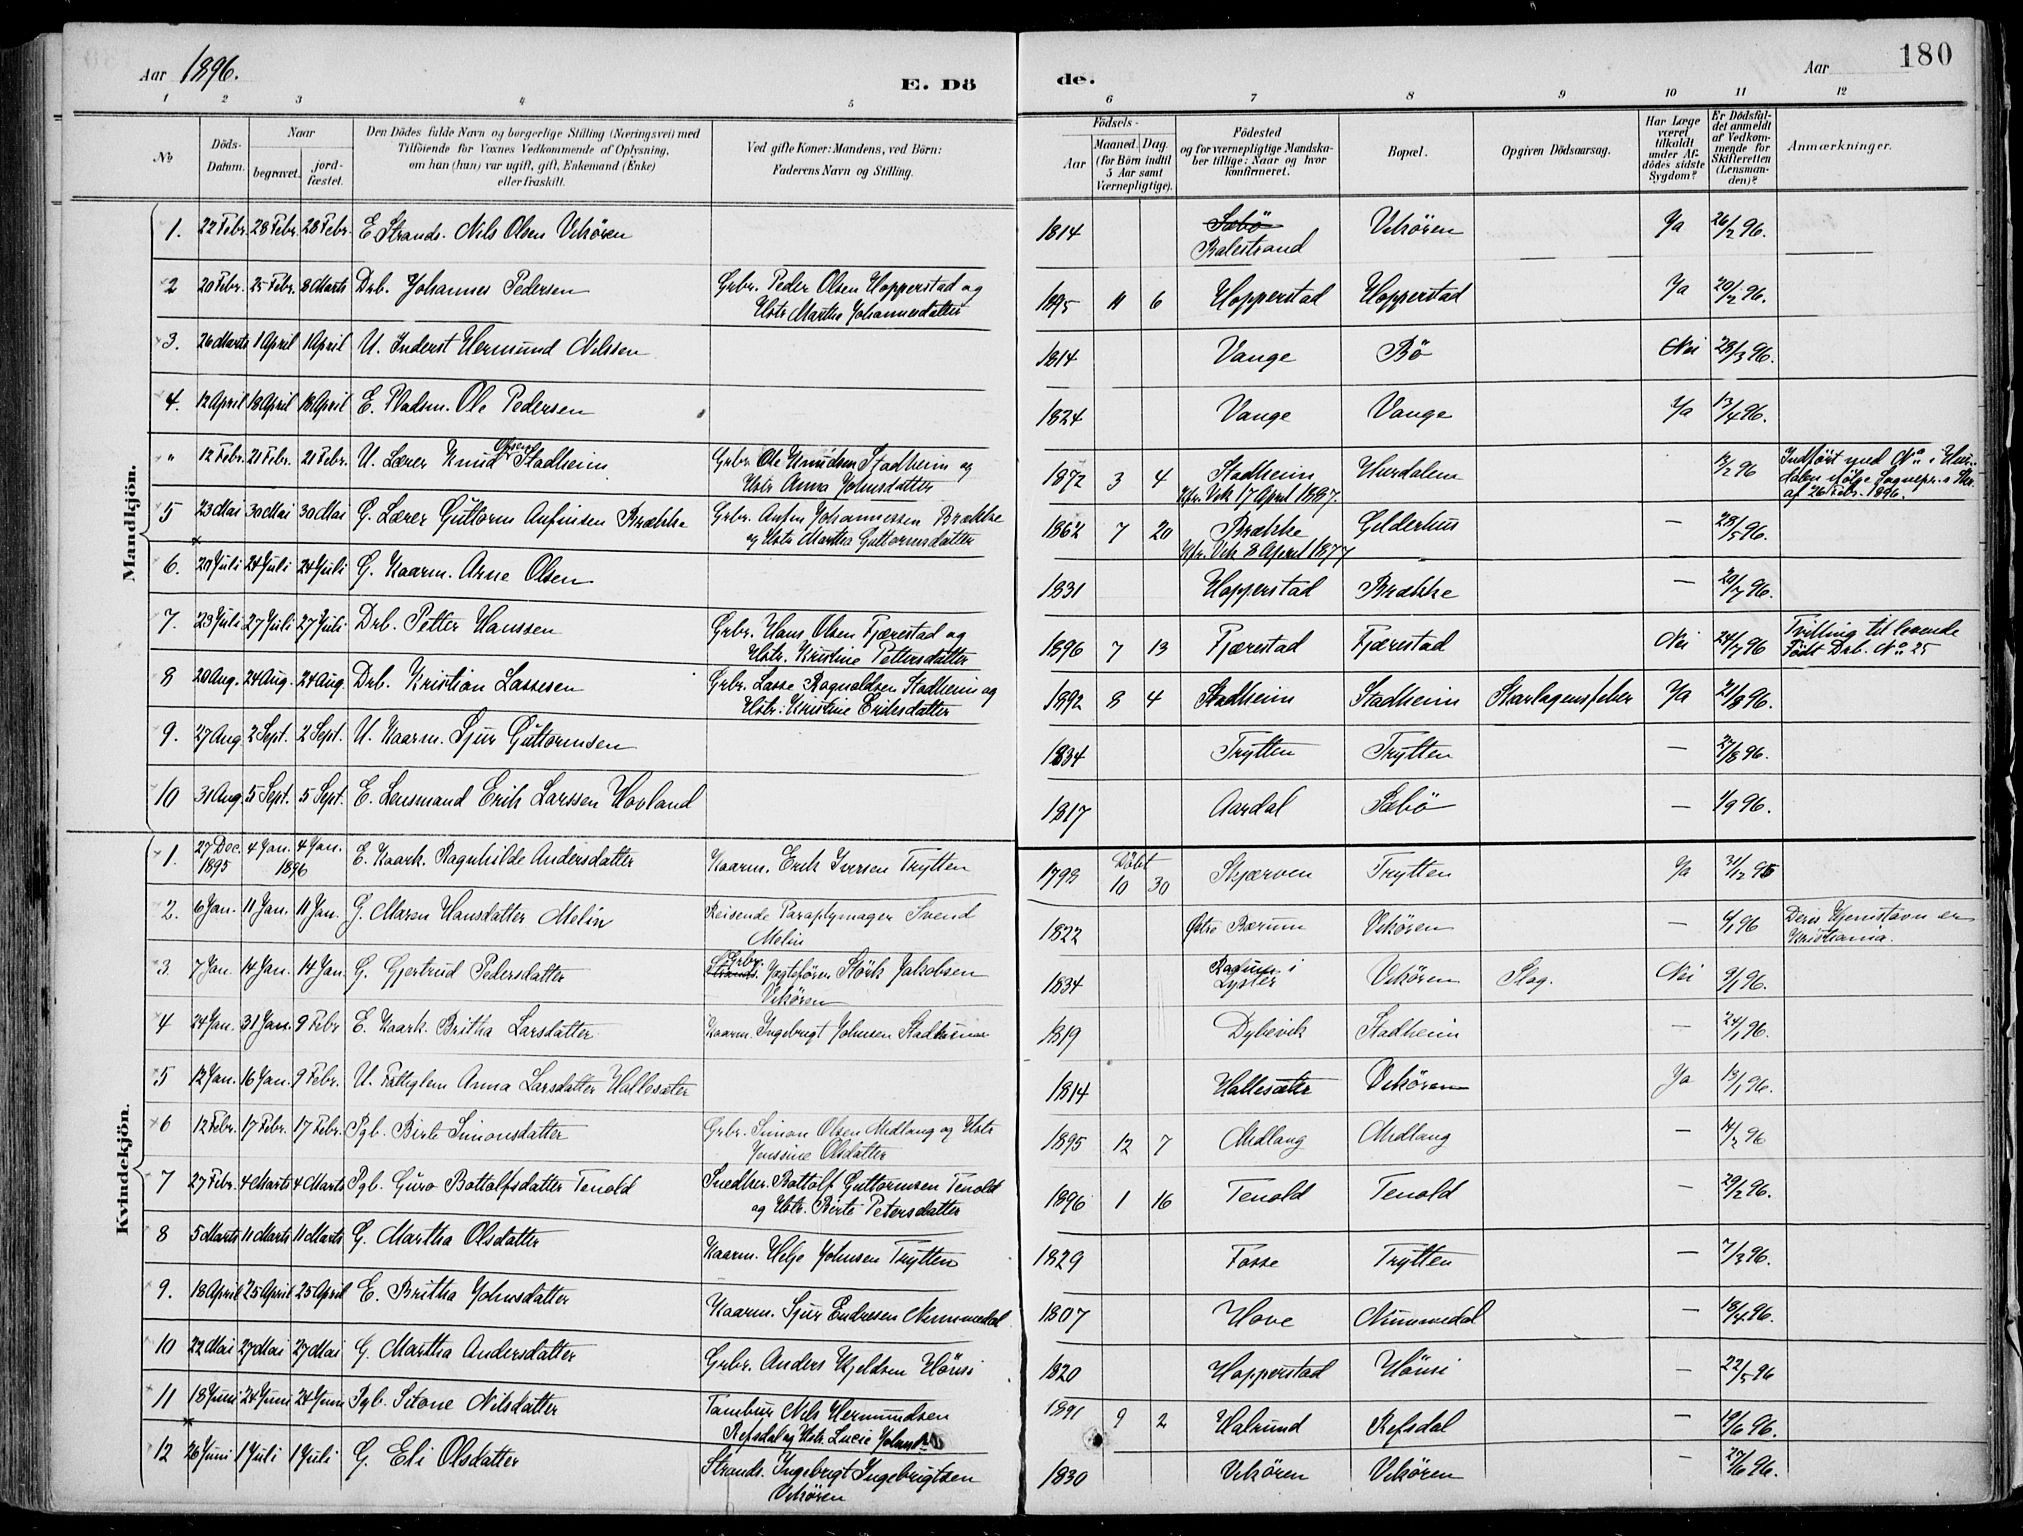 180
Aar 1896.
E. Dö
de.
Aar
1 2 3 4 5 6 7 8 9 10 11 12
No
Döds-Datum.
Naar
begravet.
jord-fæstet.
Den Dödes fulde Navn og borgerlige Stilling (Næringsvei) med
Tilföiende for Voxnes Vedkommende af Oplysning,
om han (hun) var ugift, gift, Enkemand (Enke)
eller fraskilt.
Ved gifte Koner: Mandens, ved Börn:
Faderens Navn og Stilling.
Födsels-
Aar
Maaned. Dag.
(for Börn indtil
5 Aar samt
Værnepligtige).
Födested
og for værnepligtige Mandska-
ber tillige: Naar og hvor
konfirmeret.
Bopæl.
Opgiven Dödsaarsag.
Har Læge
været
tilkaldt
under Af-
dödes sidste
Sygdom?
Er Dödsfal-
det anmeldt
af Vedkom-
mende for
Skifteretten
(Lensman-
den)?
Anmærkninger.
Mandkjön.
1. 22 Febr. 28 Febr. 28 Febr. E. Strands. Nils Olsen Vikören 1814 Sæbö Balestrand Vikören Ja 26/2 96.
2 20 Febr. 25 Febr. 8 Marts Drb. Johannes Pedersen Grbr. Peder Olsen Hopperstad og
Hstr Martha Johannesdatter 1895 11 6 Hopperstad Hopperstad Ja 20/2 96.
3. 26 Marts 1 April 1 April U. Inderst Hermund Nilssen 1814 Vange Bö Nei 28/3 96.
4. 12 April 18 April 18 April E. Pladsm. Ole Pedersen 1824 Vange Vange Ja 13/4 96.
" 12 Febr. 21 Febr. 21 Febr. U. Lærer Knud Olsen Stadheim Grbr. Ole Knudsen Stadheim og
Hstr Anna Johnsdatter 1872 3 4 Stadheim
Kfr. Vik 17 April 1887. Hurdalen 12/2 96 Indfört
af 26 Feb. 1896.
5 23 Mai 30 Mai 30 Mai G. Lærer Guttorm Anfinsen Brække Grbr. Anfin Johannessen Brække
og Hstr Martha Guttormsdatter 1862 7 20 Brække
Kfr. Vik 8 April 1877 Gilderhus — 28/5 96.
6. 20 Juli 24 Juli 24 Juli G. Kaarm. Arne Olsen 1831 Hopperstad Brække — 20/7 96.
7. 23 Juli 27 Juli 27 Juli Drb. Petter Hanssen Grbr. Hans Olsen Fjærestad og
Hstr. Kristine Pettersdatter 1896 7 13 Fjærestad Fjærestad Nei 24/7 96 Tvilling til levende
Födt Drb. No 25
8 20 Aug. 24 Aug. 24 Aug Drb. Kristian Lassesen Grbr. Lasse Ragnaldsen Stadheim og
Hstr: Kristine Eriksdatter 1892 8 4 Stadheim Stadheim Skarlagensfeber Ja 21/8 96.
9. 27 Aug 2 Sept. 2 Sept. U. Kaarm. Sjur Guttormsen 1834 Trytten Trytten — 27/8 96.
10 31 Aug. 5 Sept. 5 Sept. E. Lensmand Erik Larssen Hovland 1817 Aardal Sæbö — 1/9 96.
Kvindekjön.
1. 27 Dec. 1895 4 Jan. 4 Jan. 1896 E. Kaark. Ragnhilde Andersdatter Kaarm. Erik Iversen Trytten 1798 Döbt 10 30 Skjærven Trytten Ja 31/12 95
2. 6 Jan. 11 Jan. 11 Jan. G. Maren Hansdatter Melin Reisende Paraplymager Svend
Melin 1822 Østre Bærum Vikören — 6/1 96 Deres Hjemstavn er
Kristiania.
3. 7 Jan. 14 Jan. 14 Jan. G. Gjertrud Pedersdatter Grbr. Strands. Jagtsförer Störk Jakobsen
Vikören 1834 i Lyster Vikören Slag. Nei 9/1 96.
4 24 Jan. 31 Jan. 9 Febr E. Kaark. Britha Larsdatter Kaarm. Ingebrigt Johnsen Stadheim 1819 Dybevik Stadheim — 24/1 96.
5 12 Jan. 16 Jan. 9 Febr. U. Fattiglem Anna Larsdatter Hallesæter 1814 Hallesæter Vikören Ja 13/1 96.
6 12 Febr. 17 Febr. 17 Febr. Pgb. Birte Simonsdatter Grbr. Simon Olsen Midlang og Hstr
Jenssine Olsdatter 1895 12 7 Midlang Midlang — 14/2 96
7 27 Febr. 4 Marts 4 Marts Pgb. Guro Bottolfsdatter Tenold Snedker. Bottolf Guttormsen Tenold
og Hstr. Birte Petersdatter 1896 1 16 Tenold Tenold — 29/2 96.
8 5 Marts 11 Marts 11 Marts G. Martha Olsdatter Kaarm. Helje Johnsen Trytten 1829 Fosse Trytten — 7/3 96.
9. 18 April 25 April 25 April E. Britha Johnsdatter Kaarm. Sjur Endresen Nummedal 1807 Hove Nummedal — 18/4 96.
10 22 Mai 27 Mai 27 Mai G. Martha Andersdatter Grbr. Anders Kjeldsen Hönsi 1820 Hopperstad Hönsi — 22/5 96
11 18 Juni 24 Juni 24 Juni Pgb. Sitone Nilsdatter Tambur Nils Hermundsen
Refsdal og Hstr. Lucie 1891 9 2 Halrund Refsdal — 19/6 96.
12 26 Juni 1 Juli 1 Juli G. Eli Olsdatter Strands. Ingebrigt Ingebrigtsen
Vikören 1830 Vikören Vikören — 27/6 96.